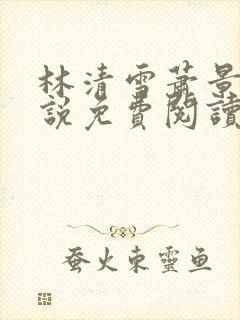 林清雪蕭景
説免費閱讀
蚕火東靈鱼